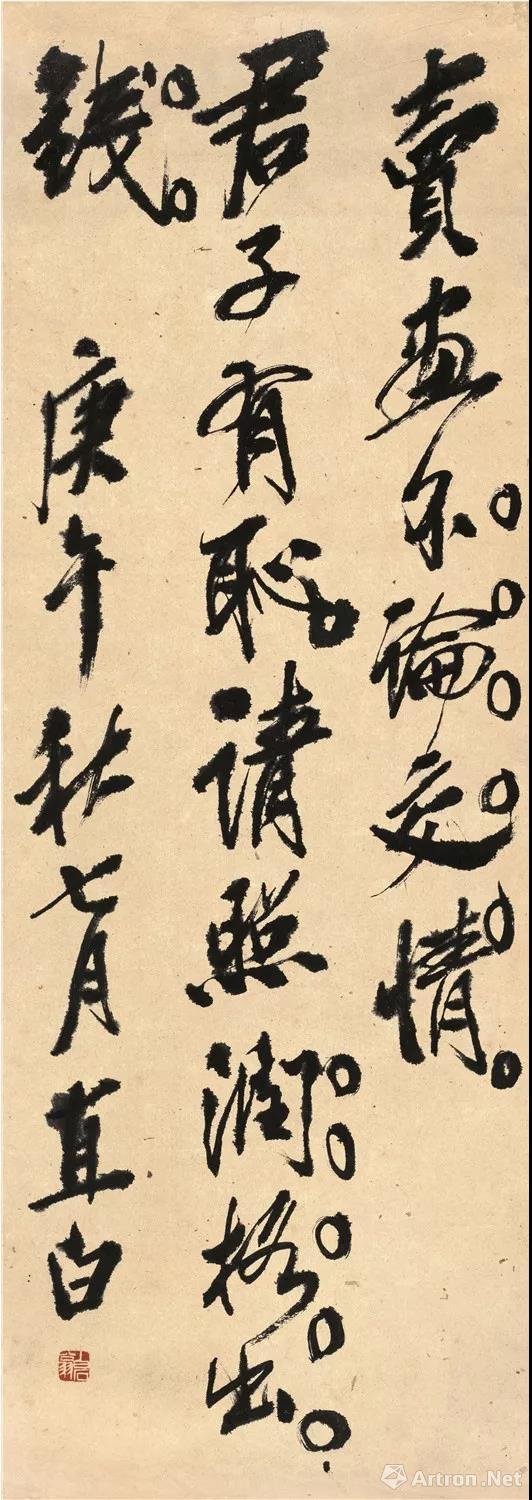 賣畫不論交情
君子有恥請照潤格出
錢。庚午秋七月直白
Artron.Net